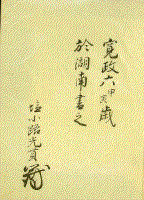 寛政六甲寅歳
於湖南書之
塩小路光貫